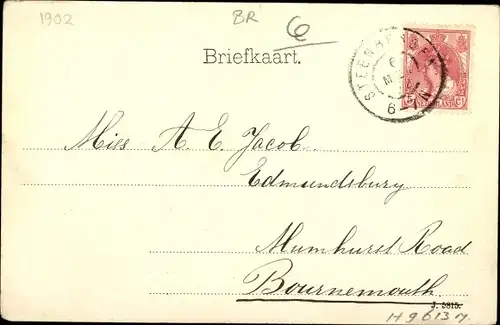 1902
BR
6
Briefkaart.
Miss A. E. Jacob.
Edmundsbury
Mumhurst Road
Bournemouth.
J. 5815.
H 9613